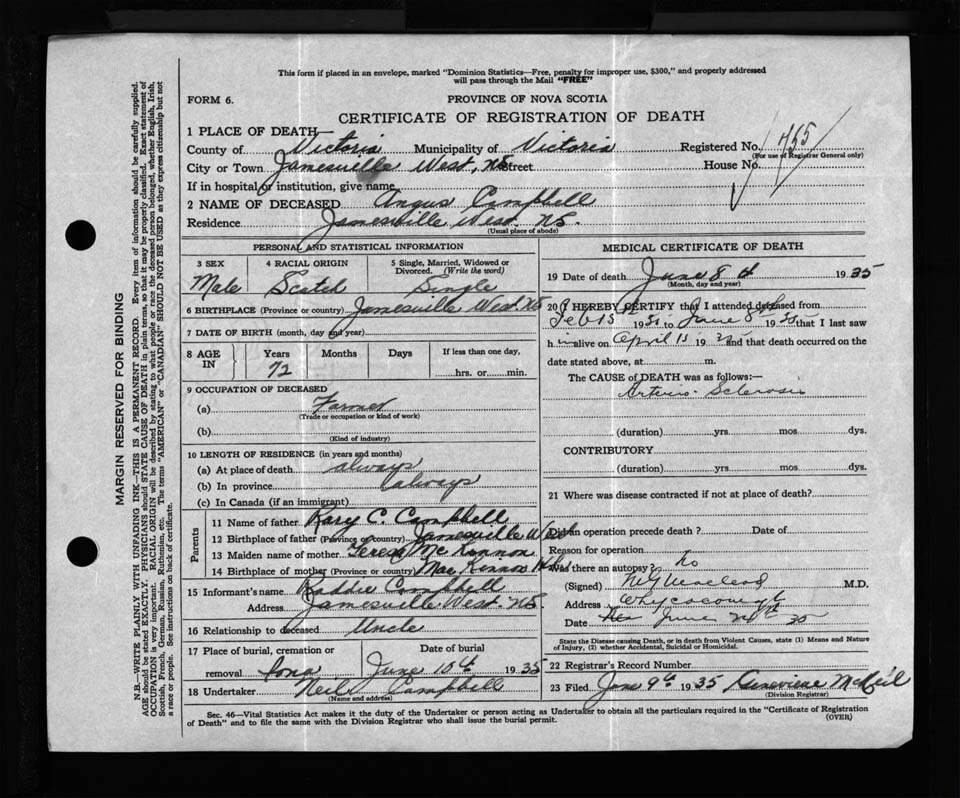 This form if placed in an envelope, marked "Dominion Statistics—Free, penalty for improper use, $300," and properly addressed
will pass through the Mail "FREE"
FORM 6.
PROVINCE OF NOVA SCOTIA
CERTIFICATE OF REGISTRATION OF DEATH
1 PLACE OF DEATH—
County of Victoria Municipality of Victoria Registered No. 755
(For use of Registrar General only)
City or Town Jamesville West, NS Street House No.
If in hospital or institution, give name
2 NAME OF DECEASED Angus Campbell
Residence Jamesville West. NS.
(Usual place of abode)
PERSONAL AND STATISTICAL INFORMATION
3 SEX 4 RACIAL ORIGIN 5 Single, Married, Widowed or
Divorced. (Write the word)
Male Scotch Single
6 BIRTHPLACE (Province or country) Jamesville West. NS
7 DATE OF BIRTH (month, day and year)
8 AGE IN Years Months Days If less than one day,
72 hrs. or min.
9 OCCUPATION OF DECEASED
(a) Farmer
(Trade or occupation or kind of work)
(b)
(Kind of industry)
10 LENGTH OF RESIDENCE (in years and months)
(a) At place of death always
(b) In province always
(c) In Canada (if an immigrant)
Parents
11 Name of father Rory C. Campbell
12 Birthplace of father (Province or country) Jamesville West
13 Maiden name of mother Teresa McKinnon
14 Birthplace of mother (Province or country) MacKinnon
15 Informant's name Campbell
Address Jamesville West. NS.
16 Relationship to deceased Uncle
17 Place of burial, cremation or Date of burial
removal Iona June 10th 1935
18 Undertaker Neil Campbell
(Name and address)
MEDICAL CERTIFICATE OF DEATH
19 Date of death June 8th 1935
(Month, day and year)
20 I HEREBY CERTIFY that I attended deceased from
Feb 15 193 to June 8th 1935 that I last saw
him alive on April 15 19 and that death occurred on the
date stated above, at m.
The CAUSE of DEATH was as follows:—
Arterio-Sclerosis
(duration) yrs mos dys.
CONTRIBUTORY
(duration) yrs mos dys.
21 Where was disease contracted if not at place of death?
Did an operation precede death? Date of
Reason for operation
Was there an autopsy? No
(Signed) Macleod M.D.
Address Whycocomagh
Date June 24th 35
State the Disease causing Death, or in death from Violent Causes, state (1) Means and Nature
of Injury, (2) whether Accidental, Suicidal or Homicidal.
22 Registrar's Record Number
23 Filed June 9th 1935 Genevieve McNeil
(Division Registrar)
Sec. 46—Vital Statistics Act makes it the duty of the Undertaker or person acting as Undertaker to obtain all the particulars required in the "Certificate of Registration
of Death" and to file the same with the Division Registrar who shall issue the burial permit.
(OVER)
MARGIN RESERVED FOR BINDING
N.B.—WRITE PLAINLY WITH UNFADING INK—THIS IS A PERMANENT RECORD. Every item of information should be carefully supplied.
AGE should be stated EXACTLY. PHYSICIANS should STATE CAUSE OF DEATH in plain terms, so that it may be properly classified. Exact statement of
OCCUPATION is very important. RACIAL ORIGIN will be described by stating to what people or race the deceased person belonged, whether English, Irish,
Scottish, French, German, Russian, Ruthenian, etc. The terms "AMERICAN" or "CANADIAN" SHOULD NOT BE USED as they express citizenship but not
a race or people. See instructions on back of certificate.